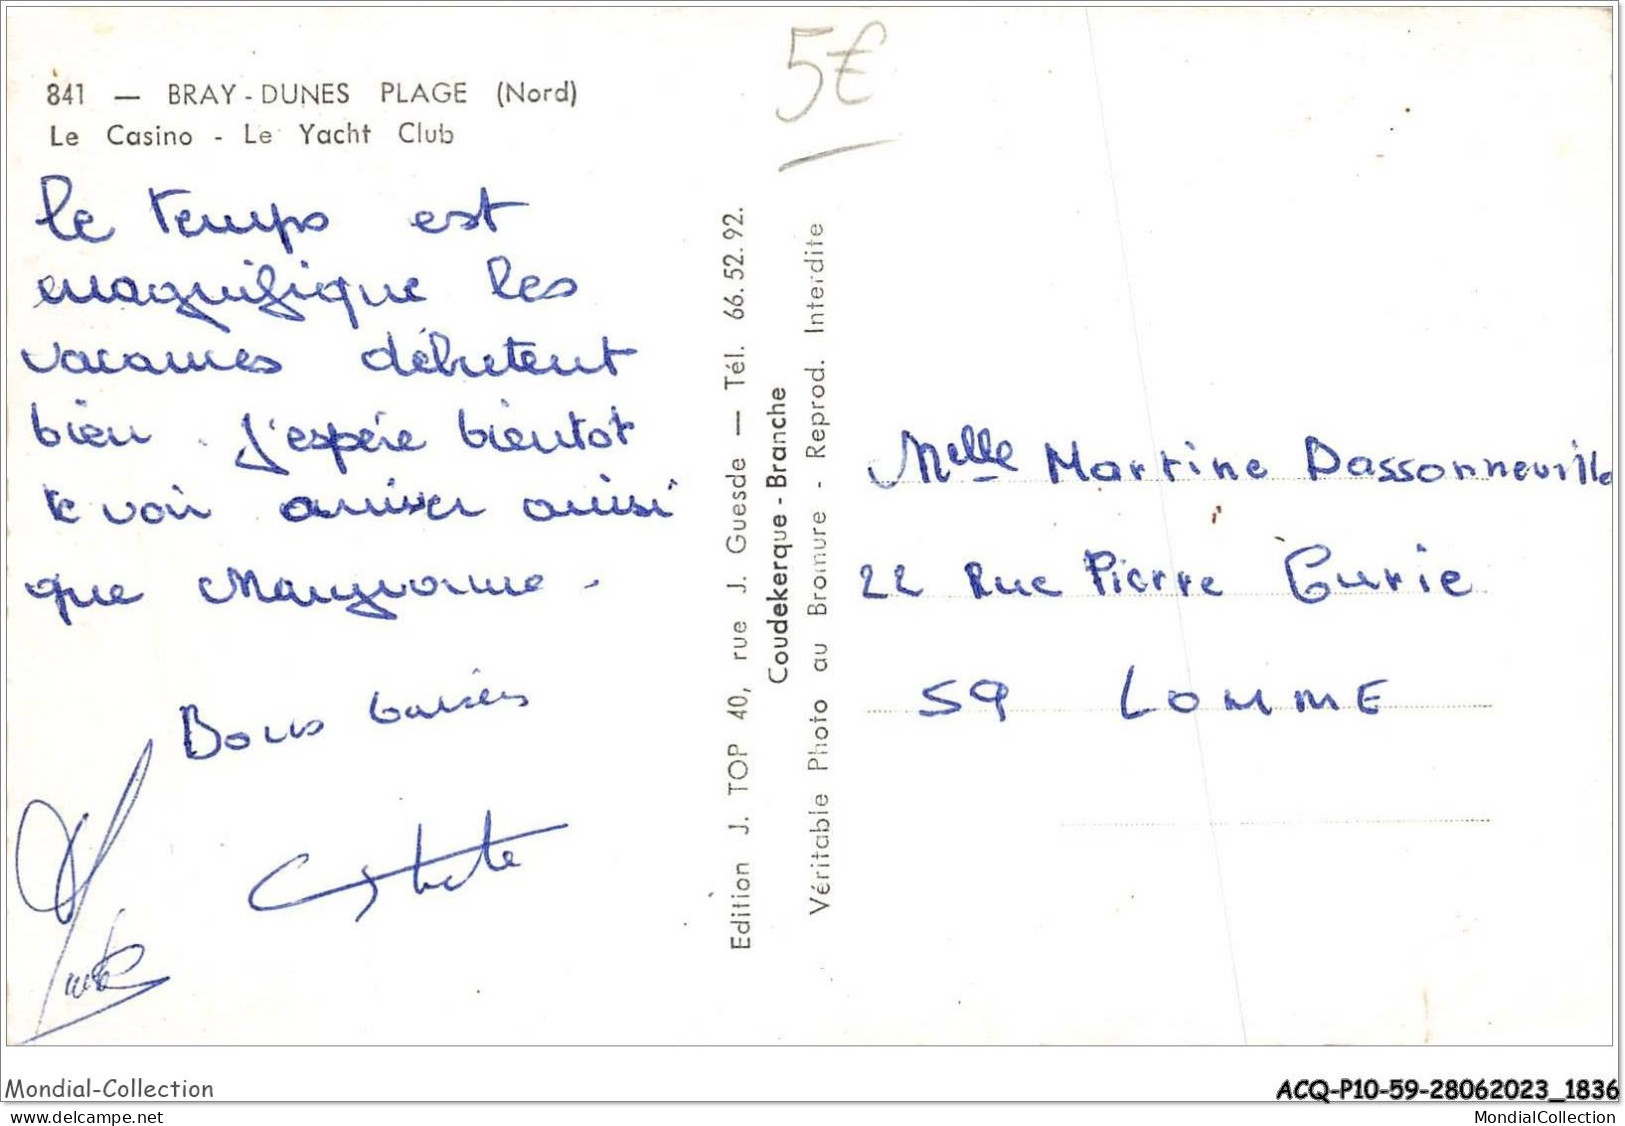 841 — BRAY-DUNES PLAGE (Nord)
Le Casino - Le Yacht Club
5€
le temps est
magnifique les
vacances débutent
bien. J'espère bientot
te voir arriver ainsi
que Maryvonne.
Bons baisers
Edition J. TOP 40, rue J. Guesde — Tél. 66.52.92.
Coudekerque-Branche
Véritable Photo au Bromure - Reprod. Interdite
Melle Martine Dassonneville
22 Rue Pierre Curie
59 LOMME
Mondial-Collection
ACQ-P10-59-28062023_1836
www.delcampe.net
MondialCollection